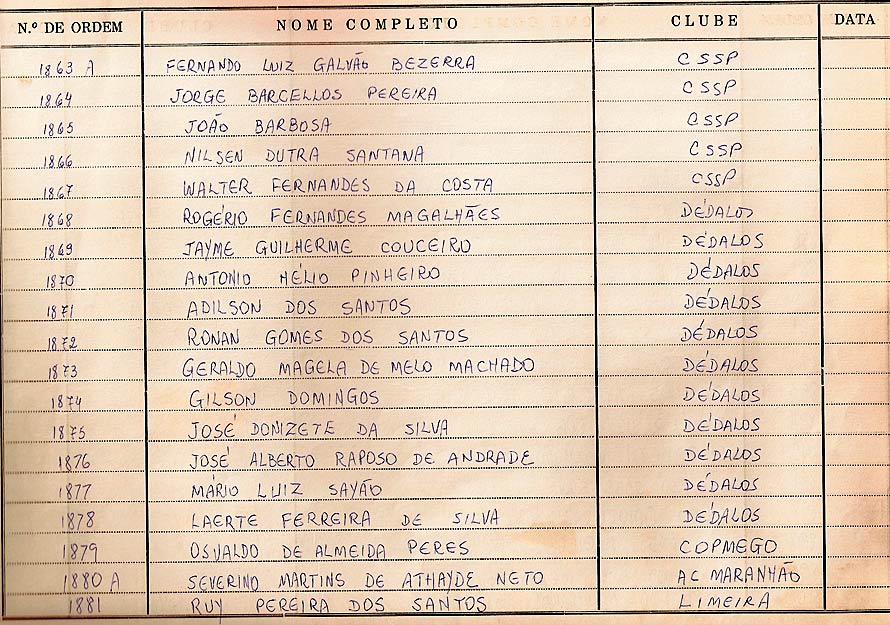 N.º DE ORDEM NOME COMPLETO CLUBE DATA
1863 A FERNANDO LUIZ GALVÃO BEZERRA CSSP
1864 JORGE BARCELLOS PEREIRA CSSP
1865 JOÃO BARBOSA CSSP
1866 NILSEN DUTRA SANTANA CSSP
1867 WALTER FERNANDES DA COSTA CSSP
1868 ROGÉRIO FERNANDES MAGALHÃES DÉDALOS
1869 JAYME GUILHERME COUCEIRO DÉDALOS
1870 ANTONIO HÉLIO PINHEIRO DÉDALOS
1871 ADILSON DOS SANTOS DÉDALOS
1872 RONAN GOMES DOS SANTOS DÉDALOS
1873 GERALDO MAGELA DE MELO MACHADO DÉDALOS
1874 GILSON DOMINGOS DÉDALOS
1875 JOSÉ DONIZETE DA SILVA DÉDALOS
1876 JOSÉ ALBERTO RAPOSO DE ANDRADE DÉDALOS
1877 MÁRIO LUIZ SAYÃO DÉDALOS
1878 LAERTE FERREIRA DE SILVA DÉDALOS
1879 OSVALDO DE ALMEIDA PERES COPMEGO
1880 A SEVERINO MARTINS DE ATHAYDE NETO AC MARANHÃO
1881 RUY PEREIRA DOS SANTOS LIMEIRA